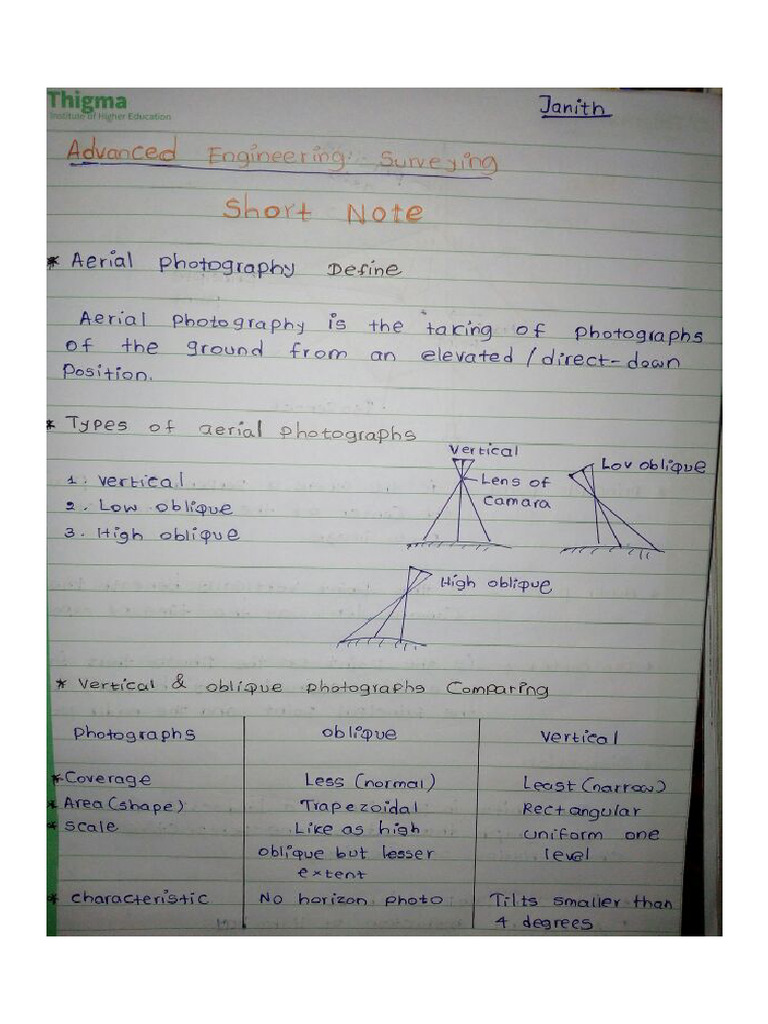 Thigma
Institute of Higher Education
Janith
Advanced Engineering Surveying
Short Note
* Aerial photography Define
Aerial photography is the taking of photographs
of the ground from an elevated / direct-down
Position.
* Types of aerial photographs
1. Vertical
2. Low oblique
3. High oblique
Vertical
Lens of
Camara
Lov oblique
High oblique
* Vertical & oblique photographs Comparing
Photographs oblique Vertical
* Coverage Less (normal) Least (narrow)
* Area (shape) Trapezoidal Rectangular
* Scale Like as high uniform one
oblique but lesser level
extent
* Characteristic No horizon photo Tilts smaller than
4 degrees